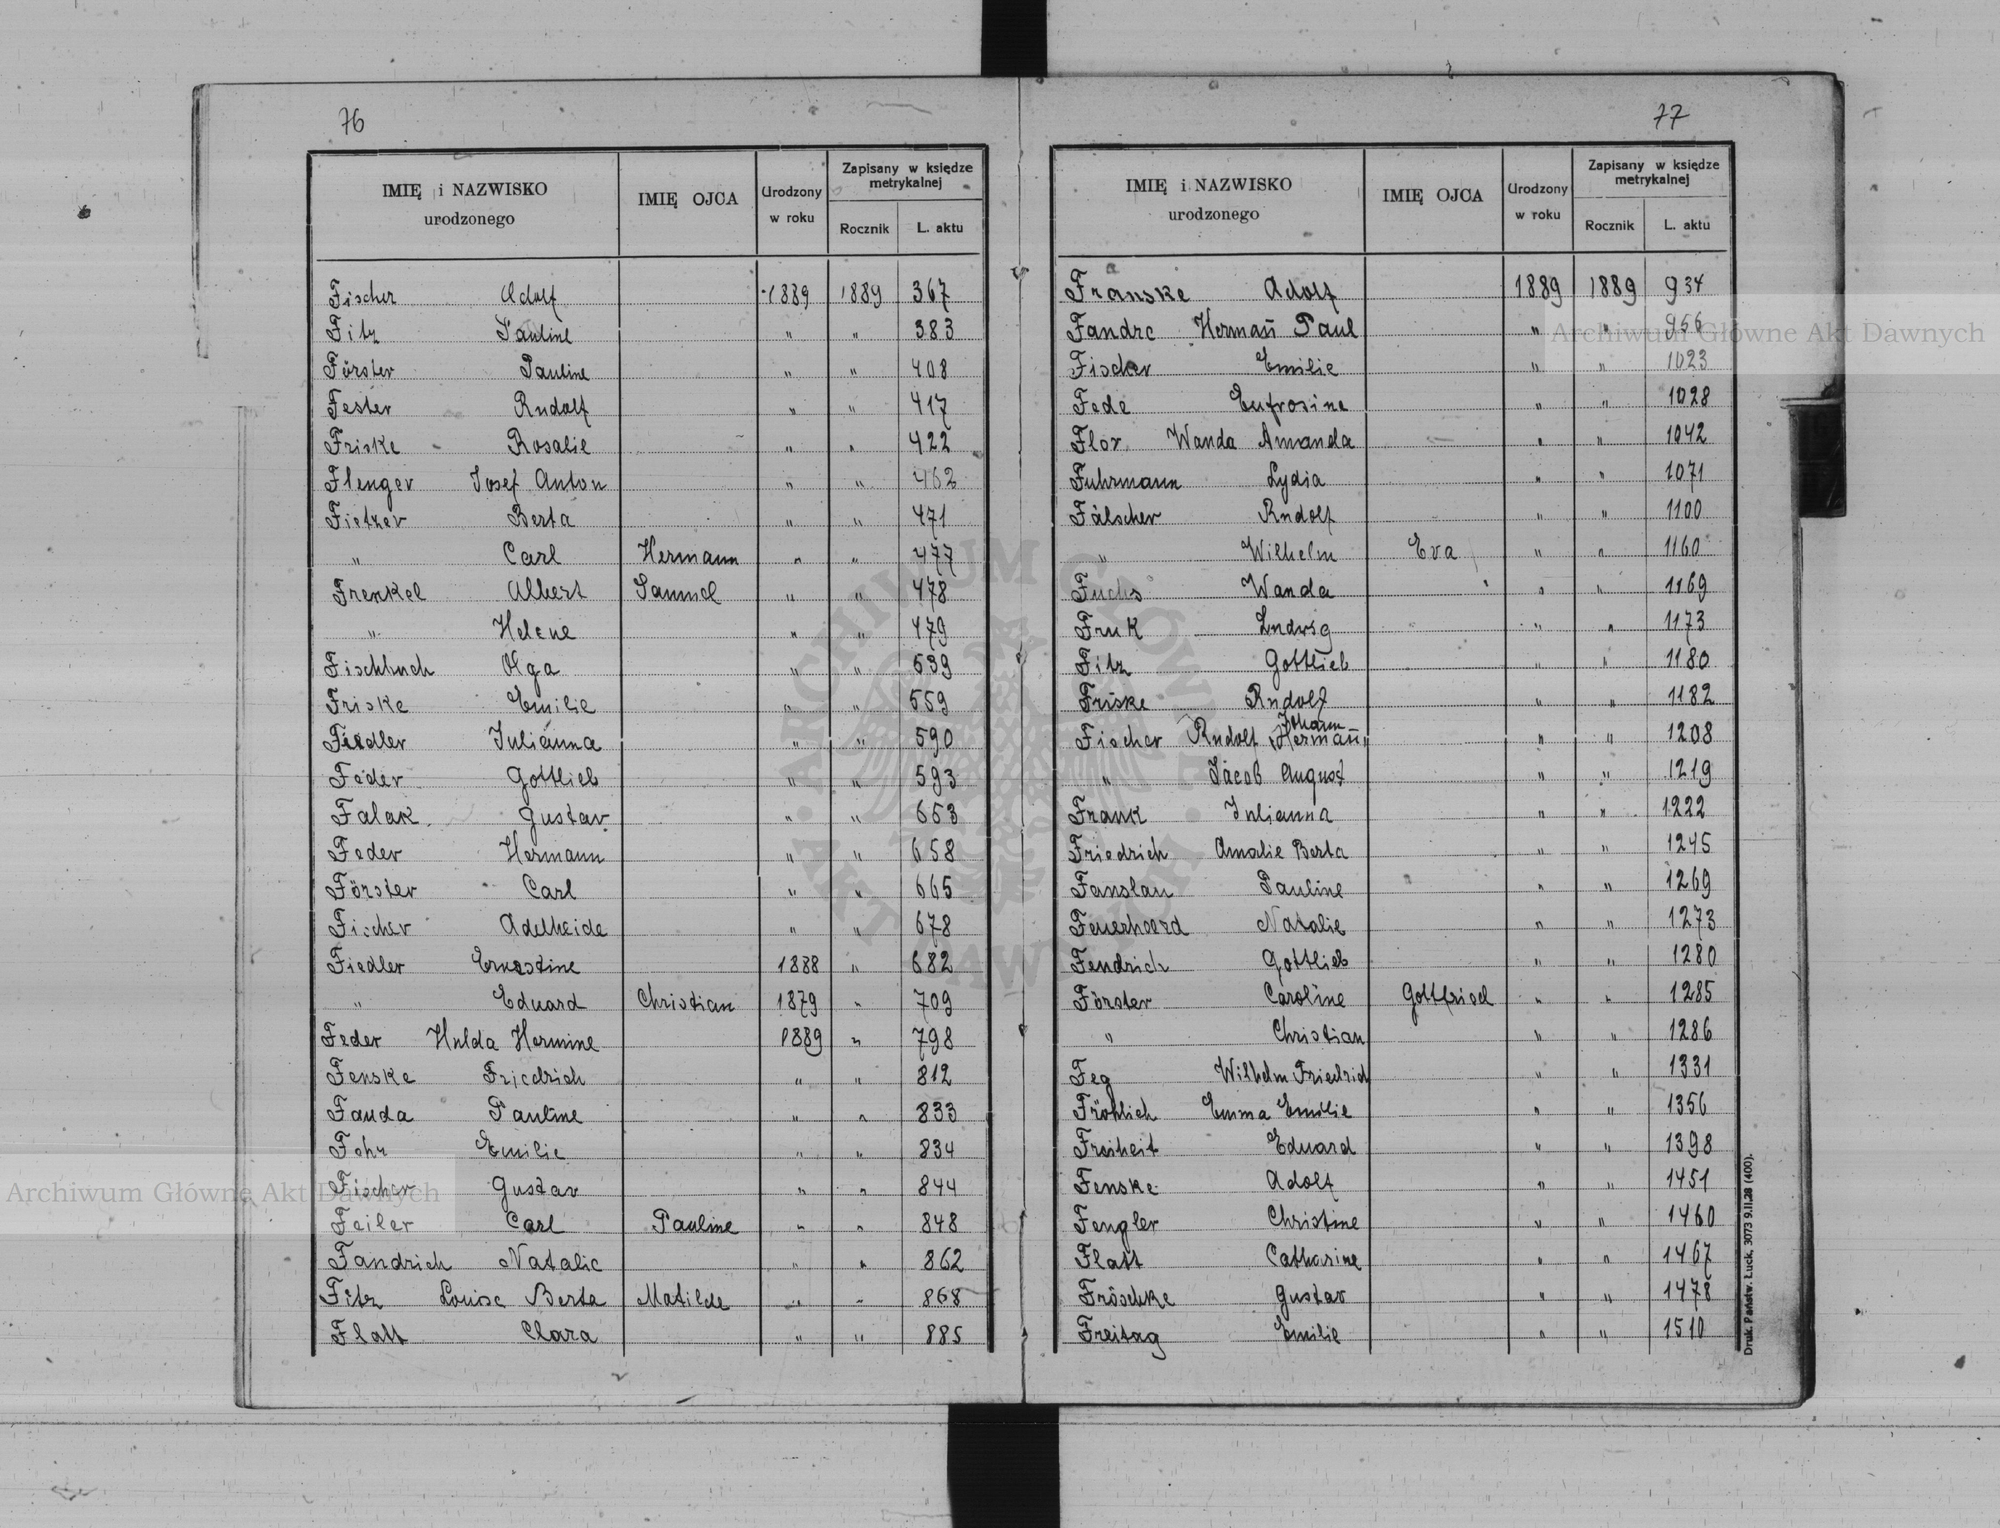 76
IMIĘ i NAZWISKO urodzonego IMIĘ OJCA Urodzony w roku Zapisany w księdze metrykalnej Rocznik L. aktu
Fischer Adolf 1889 1889 367
Fitz Pauline " " 383
Förster Pauline " " 408
Fester Rudolf " " 417
Friske Rosalie " " 422
Flenger Josef Anton " " 462
Fietzer Berta " " 471
" Carl Hermann " " 477
Frenkel Albert Samuel " " 478
" Helene " " 479
Fischbuch Olga " " 539
Friske Emilie " " 559
Fiedler Julianna " " 590
Feder Gottlieb " " 593
Falak Gustav " " 653
Feder Hermann " " 658
Förster Carl " " 665
Fischer Adelheide " " 678
Fiedler Ernestine 1888 " 682
" Eduard Christian 1879 " 709
Feder Hulda Hermine 1889 " 798
Fenske Friedrich " " 812
Fauda Pauline " " 833
Fehr Emilie " " 834
Fischer Gustav " " 844
Feiler Carl Pauline " " 848
Fandrich Natalie " " 862
Fitz Louise Berta Matilde " " 868
Flatt Clara " " 885
77
IMIĘ i NAZWISKO urodzonego IMIĘ OJCA Urodzony w roku Zapisany w księdze metrykalnej Rocznik L. aktu
Franske Adolf 1889 1889 934
Fandre Hermañ Paul " " 956
Fischer Emilie " " 1023
Fede Eufrosine " " 1028
Flor Wanda Amanda " " 1042
Fuhrmann Lydia " " 1071
Fälscher Rudolf " " 1100
" Wilhelm Eva " " 1160
Fuchs Wanda " " 1169
Fruk Ludwig " " 1173
Fitz Gottlieb " " 1180
Friske Rudolf " " 1182
Fischer Rudolf Johann Hermañ " " 1208
" Jacob August " " 1219
Frank Julianna " " 1222
Friedrich Amalie Berta " " 1245
Fenslau Pauline " " 1269
Feuerheerd Natalie " " 1273
Fendrich Gottlieb " " 1280
Förster Caroline Gottfried " " 1285
" Christian " " 1286
Feg Wilhelm Friedrich " " 1331
Fröhlich Emma Emilie " " 1356
Freiheit Eduard " " 1398
Fenske Adolf " " 1451
Fengler Christine " " 1460
Flatt Catharine " " 1467
Fröschke Gustav " " 1478
Freitag Emilie " " 1510
Druk. Państw. Łuck. 3073 9.II.28 (400).
Archiwum Główne Akt Dawnych
Archiwum Główne Akt Dawnych
ARCHIWUM GŁÓWNE AKT DAWNYCH